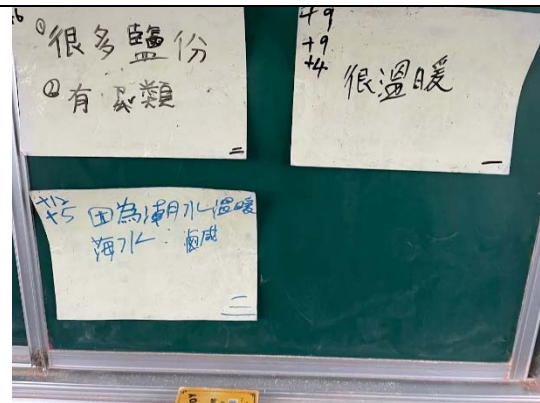 ①很多鹽份
②有貝類
二
+9
+9
+4
很溫暖
一
+12
+5
因為潮水溫暖
海水 鹹
三